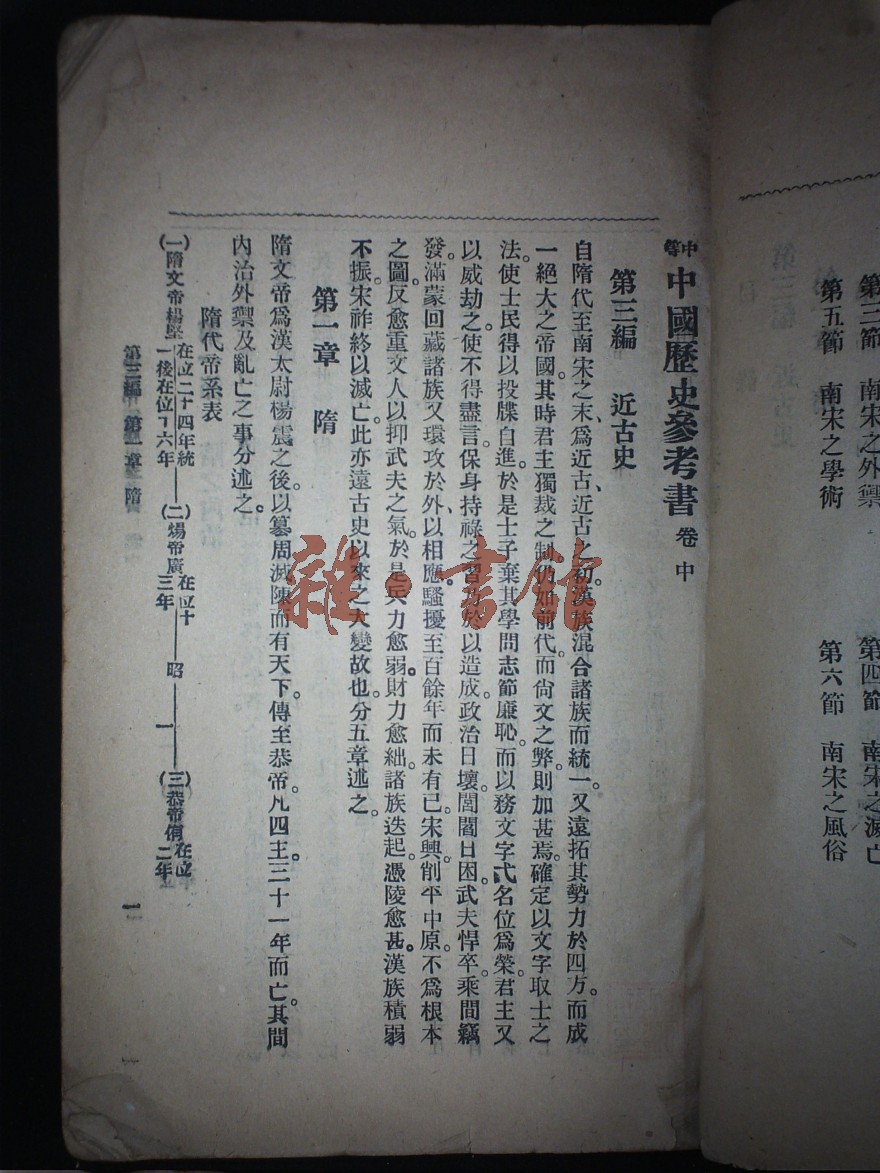 第三節　南宋之外禦　第四節　南宋之滅亡
第五節　南宋之學術　第六節　南宋之風俗
中等中國歷史參考書　卷中
第三編　近古史
自隋代至南宋之末、爲近古、近古之初。漢族混合諸族而統一。又遠拓其勢力於四方。而成
一絕大之帝國。其時君主獨裁之制仍如前代。而尙文之弊則加甚焉。確定以文字取士之
法。使士民得以投牒自進。於是士子棄其學問志節廉恥。而以務文字弋名位爲榮。君主又
以威劫之。使不得盡言。保身持祿之習乃於以造成。政治日壞。閭閻日困。武夫悍卒。乘間竊
發。滿蒙回藏諸族又環攻於外、以相應。騷擾至百餘年而未有已。宋興。削平中原。不爲根本
之圖。反愈重文人以抑武夫之氣。於是兵力愈弱。財力愈絀。諸族迭起。憑陵愈甚。漢族積弱
不振。宋祚終以滅亡。此亦遠古史以來之大變故也。分五章述之。
第一章　隋
隋文帝爲漢太尉楊震之後。以篡周滅陳而有天下。傳至恭帝。凡四主三十一年而亡。其間
內治外禦及亂亡之事分述之。
隋代帝系表
(一)隋文帝楊堅在位二十四年統一後在位十六年——(二)煬帝廣在位十三年——昭——(三)恭帝侑在位二年
第三編　第一章　隋　一
雜·書館